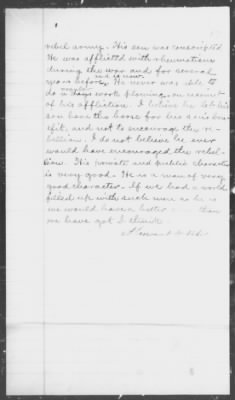 rebel army. His son was conscripted.
He was afflicted with rheumatism
during the war and for several
years before, and is now. He never was able to
do a days work plowing, on account
of his affliction. I believe he let his
son have this horse for his son's ben-
efit, and not to encourage the re-
bellion. I do not believe he ever
would have encouraged the rebel-
lion. His private and public character
is very good. He is a man of very
good character. If we had a world
filled up with such men as he is
we would have a better than
we have got I think.